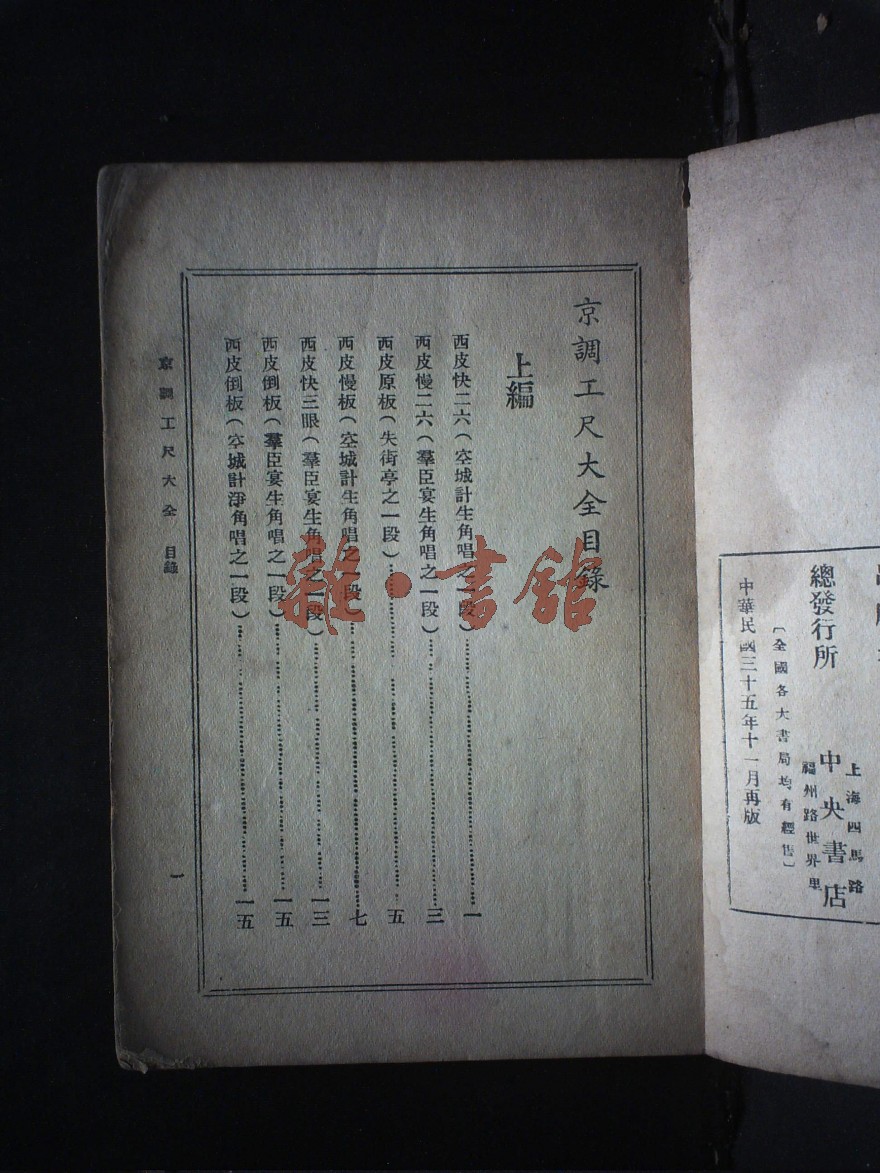 總發行所
上海四馬路
中央書店
福州路世界里
〔全國各大書局均有經售〕
中華民國三十五年十一月再版
京調工尺大全目錄
上編
西皮快二六(空城計生角唱之一段)一
西皮慢二六(羣臣宴生角唱之一段)三
西皮原板(失街亭之一段)五
西皮慢板(空城計生角唱之一段)七
西皮快三眼(羣臣宴生角唱之一段)一三
西皮倒板(羣臣宴生角唱之一段)一五
西皮倒板(空城計淨角唱之一段)一五
京調工尺大全 目錄
一
雜·書館